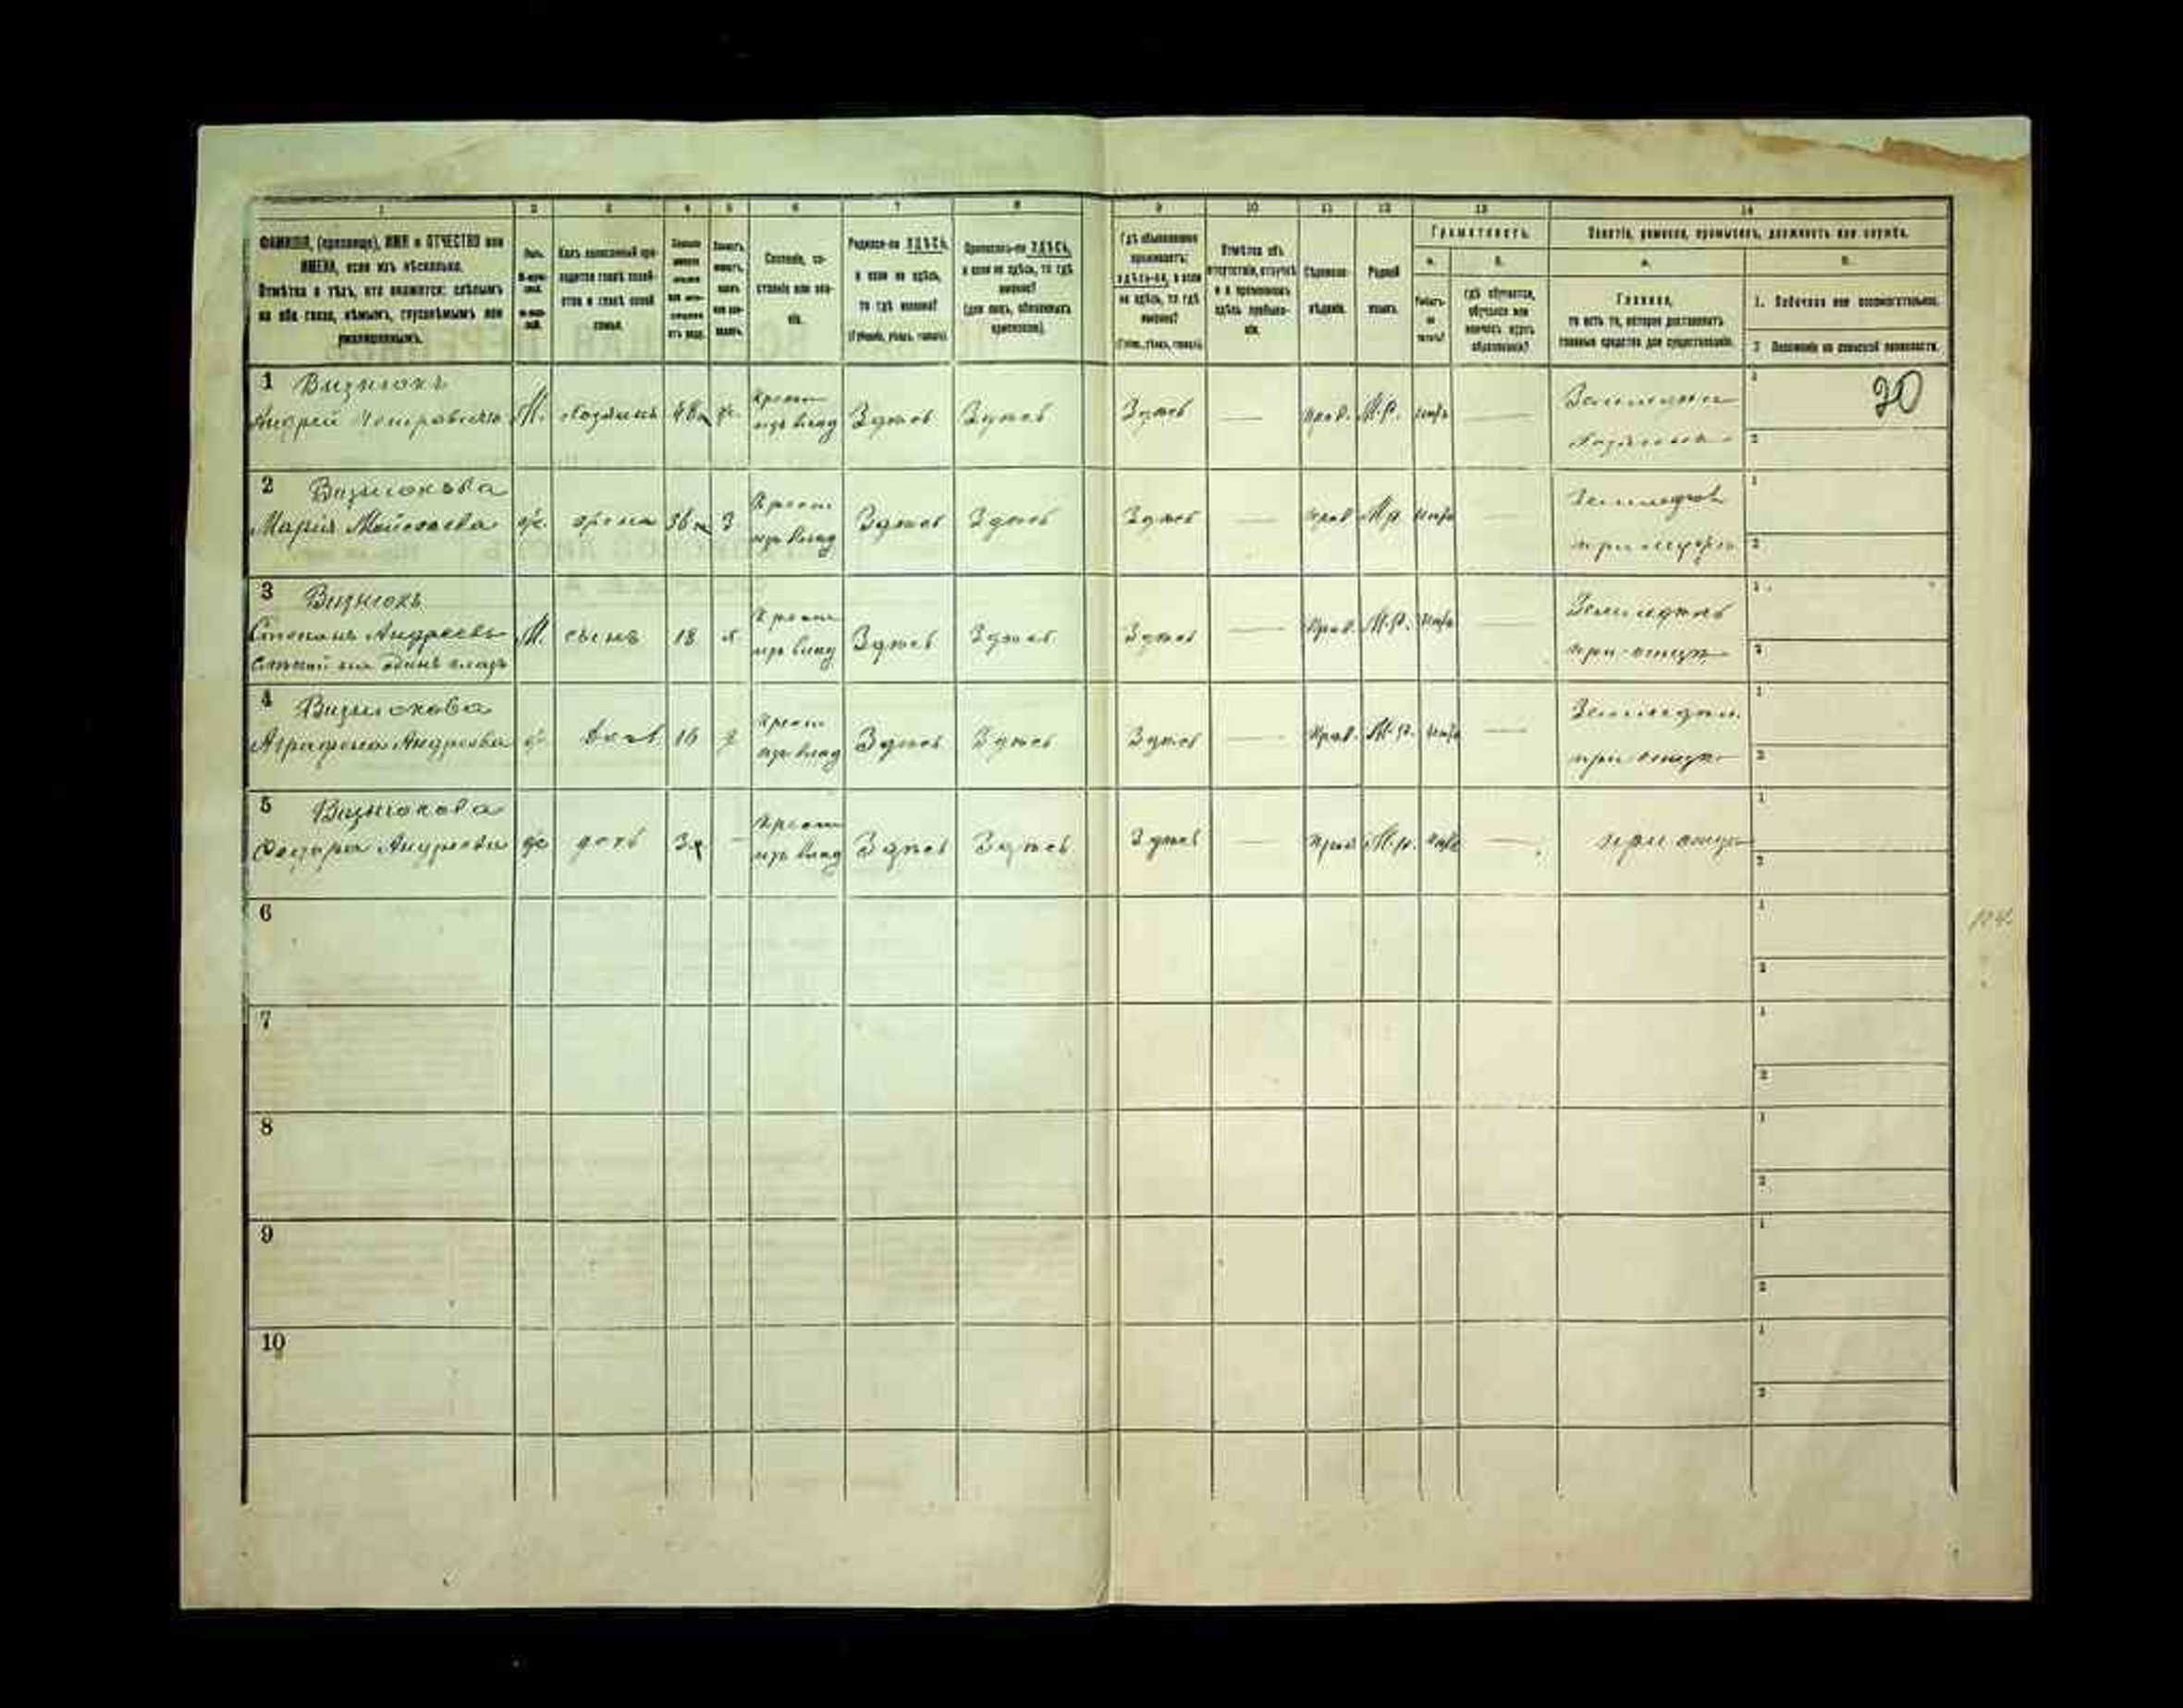 1 2 3 4 5 6 7 8 9 10 11 12 13 14
ФАМИЛІЯ, (прозвище), ИМЯ и ОТЧЕСТВО или
ИМЕНА, если ихъ нѣсколько.
Отмѣтка о тѣхъ, кто окажется: слѣпымъ
на оба глаза, нѣмымъ, глухонѣмымъ или
умалишеннымъ.
Полъ.
Какъ записанный при-
ходится главѣ хозяй-
ства и главѣ своей
семьи.
Сословіе, со-
стояніе или зва-
ніе.
Родился-ли ЗДѢСЬ,
а если не здѣсь,
то гдѣ именно?
(Губернія, уѣздъ, городъ).
Приписанъ-ли ЗДѢСЬ,
а если не здѣсь, то гдѣ
именно?
(для лицъ, обязанныхъ
припискою).
Гдѣ обыкновенно
проживаетъ:
здѣсь-ли, а если
не здѣсь, то гдѣ
именно?
(Губерн., уѣздъ, городъ).
Отмѣтка объ
отсутствіи, отлучкѣ
и о временномъ
здѣсь пребыва-
ніи.
Вѣроиспо-
вѣданіе.
Родной
языкъ.
Грамотность.
а. б.
Умѣетъ-
ли
читать?
гдѣ обучается,
обучался или
кончилъ курсъ
образованія?
Занятіе, ремесло, промыселъ, должность или служба.
а. б.
Главное,
то есть то, которое доставляетъ
главныя средства для существованія.
1. Побочное или вспомогательное.
2 Положеніе по воинской повинности.
1 Визнюкъ
Андрей Петровичъ М. Хозяинъ 48 Крест. изъ влад Здѣсь Здѣсь Здѣсь — Прав. М.Р. нѣтъ — 30
2 Визнюкова
Марія Мойсеева ж. жена 36 Крест изъ влад Здѣсь Здѣсь Здѣсь — Прав М.р. нѣтъ — Земледѣл
при мужѣ
3 Визнюкъ
Степанъ Андреевъ М. сынъ 18 х. Крест изъ влад Здѣсь Здѣсь Здѣсь — Прав. М.Р. нѣтъ — Земледѣл
слѣпой на одинъ глазъ при отцѣ
4 Визнюкова
Аграфена Андреева ж. дочь 16 Крест изъ влад Здѣсь Здѣсь Здѣсь — Прав. М.Р. нѣтъ — Земледѣл.
при отцѣ
5 Визнюкова
Андреева ж дочь 3 — Крест изъ влад Здѣсь Здѣсь Здѣсь — Прав М.р. нѣтъ — при отцѣ
6
7
8
9
10